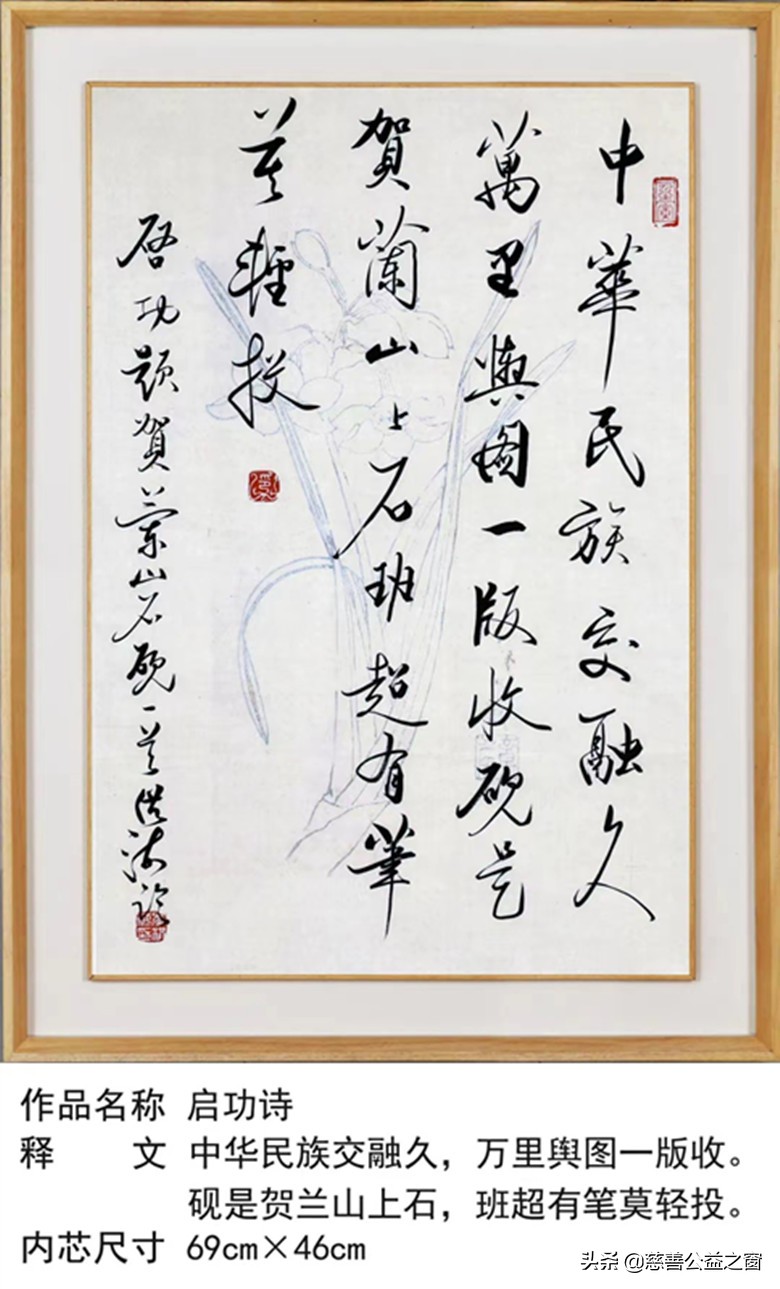 中華民族交融久
萬里輿圖一版收硯是
賀蘭山上石班超有筆
莫輕投
启功題賀蘭山石硯一首
作品名称 启功诗
释 文 中华民族交融久，万里舆图一版收。
砚是贺兰山上石，班超有笔莫轻投。
内芯尺寸 69cm×46cm
头条 @慈善公益之窗